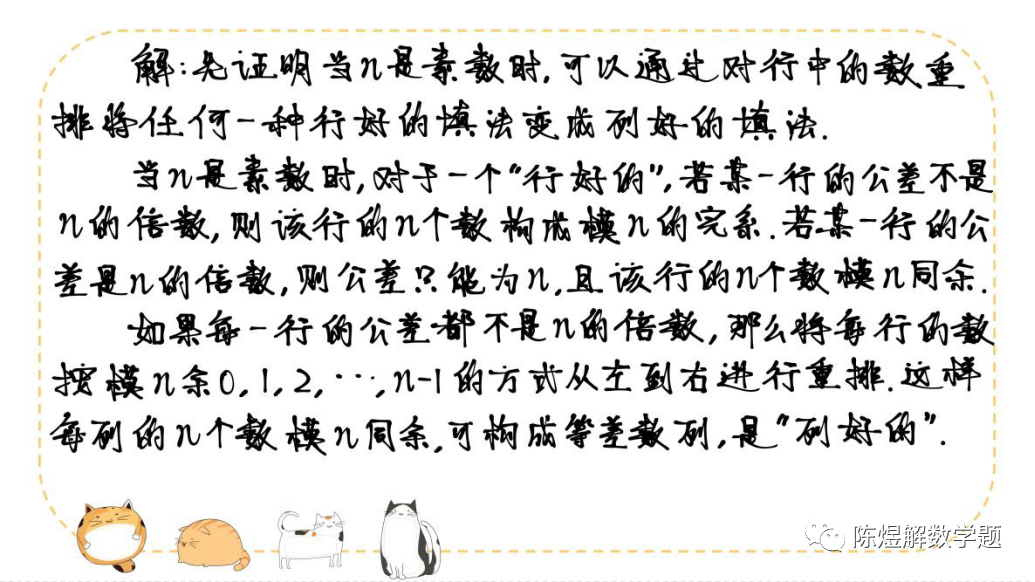 解:先证明当n是素数时,可以通过对行中的数重
排将任何一种行好的填法变成列好的填法.
当n是素数时,对于一个“行好的”,若某一行的公差不是
n的倍数,则该行的n个数构成模n的完系.若某一行的公
差是n的倍数,则公差只能为n,且该行的n个数模n同余.
如果每一行的公差都不是n的倍数,那么将每行的数
按模n余0,1,2,⋯,n-1的方式从左到右进行重排.这样
每列的n个数模n同余,可构成等差数列,是“列好的”.
陈煜解数学题